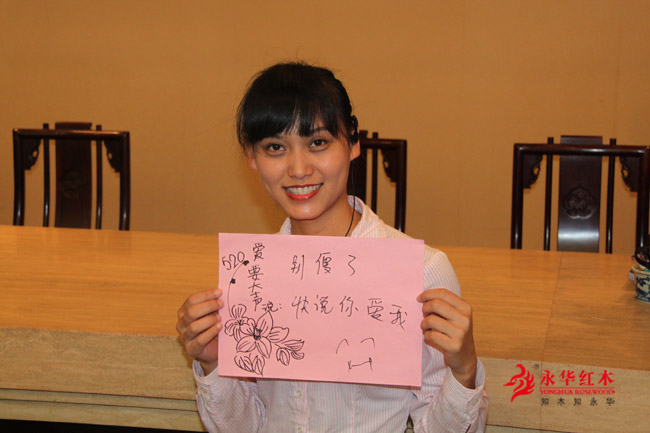 520
爱要大声说:
别傻了
快说你爱我
永华红木
YONGHUA ROSEWOOD
知木知永华